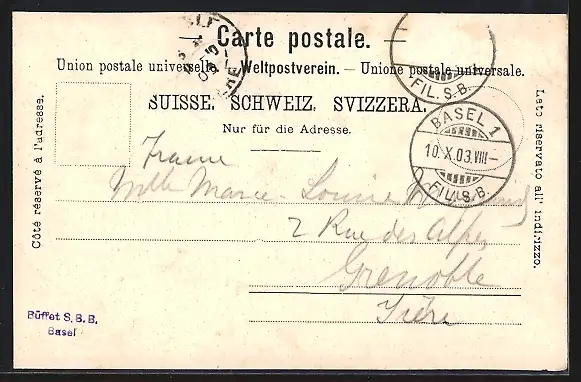 Carte postale.
Union postale universelle. — Weltpostverein. — Unione postale universale.
SUISSE. SCHWEIZ. SVIZZERA.
Nur für die Adresse.
Côté réservé à l'adresse.
Lato riservato all' indirizzo.
FIL. S.B.
BASEL 1
10.X.03.VIII—
FIL. S.B.
France
Mlle Marie-Louise
2 Rue des Alpes
Grenoble
Isère
Büffet S. B. B.
Basel